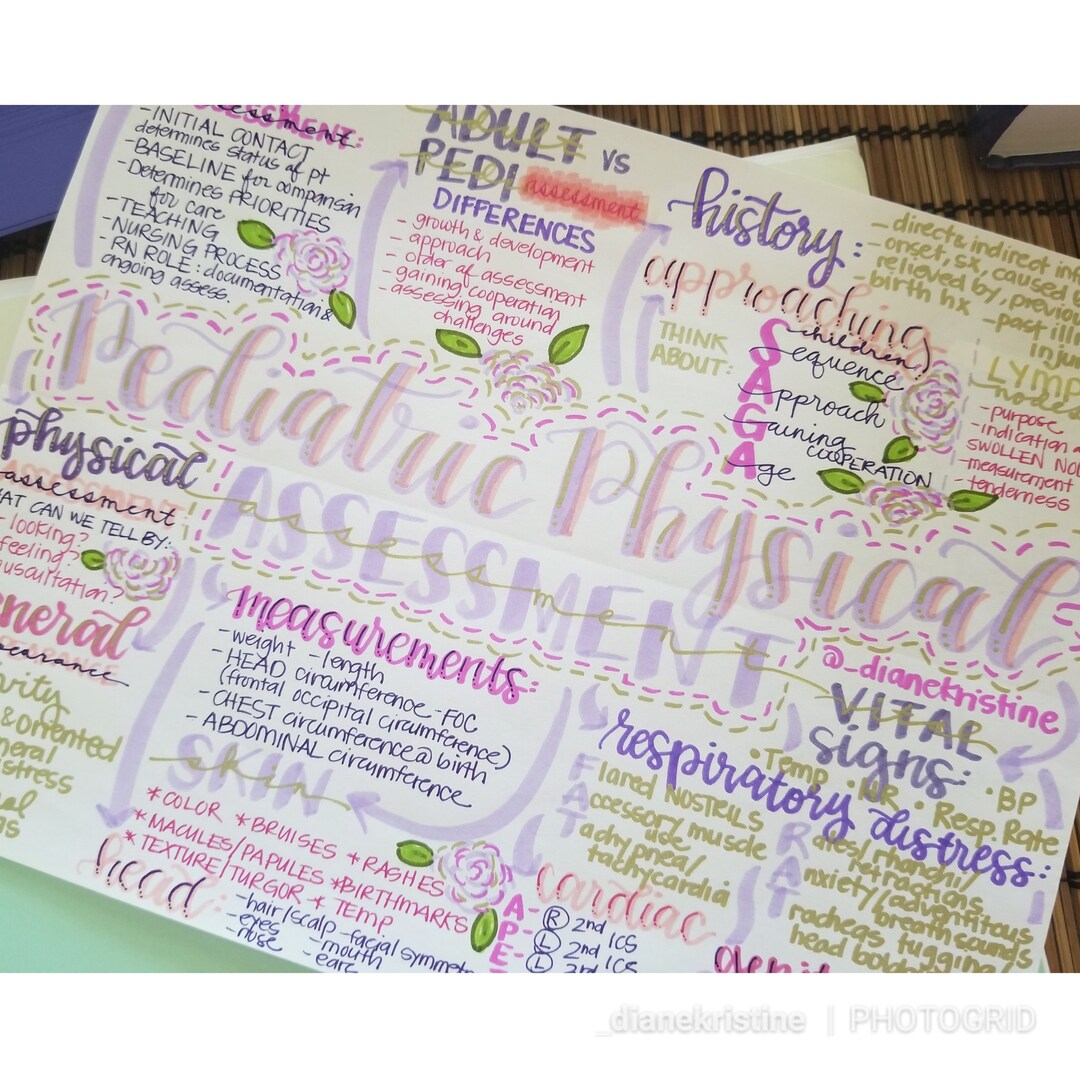 assessment:
-INITIAL CONTACT
determines status of pt
-BASELINE for comparison
-Determines PRIORITIES
for care
-TEACHING
-NURSING PROCESS
-RN ROLE: documentation &
ongoing assess.
ADULT VS
PEDI assessment
DIFFERENCES
- growth & development
- approach
- order of assessment
- gaining cooperation
- assessing around
challenges
history:
-direct & indirect
-onset, st, caused
relieved by, previous
-birth hx -past
approaching
children)
THINK
ABOUT:
Sequence
Approach
Gaining
COOPERATION
Age
LYMPH
nodes
-purpose
-indication
SWOLLEN
-measurement
-tenderness
Pediatric Physical
ASSESSMENT
assessment
@_dianekristine
physical
assessment
CAN WE TELL BY:
- looking?
feeling?
auscultation?
general
appearance
& oriented
measurements:
-weight -length
-HEAD circumference -FOC
(frontal occipital circumference)
-CHEST circumference @ birth
-ABDOMINAL circumference
SKIN
skin
*COLOR *BRUISES *RASHES
*MACULES/PAPULES *BIRTHMARKS
*TEXTURE/TURGOR * TEMP
head:
-hair/scalp -facial
-eyes -mouth
-nose -ears
VITAL
signs:
•Temp •HR •Resp. Rate •BP
respiratory distress:
Flared NOSTRILS
Accessory muscle
use
Tachypnea/
tachycardia
Rales/rhonchi/
retractions
Anxiety/adventitous
breath sounds
Tracheas tugging/
head bobbing
cardiac
A- Ⓡ 2nd ICS
P- Ⓛ 2nd ICS
E- Ⓛ 3rd ICS
_dianekristine | PHOTOGRID